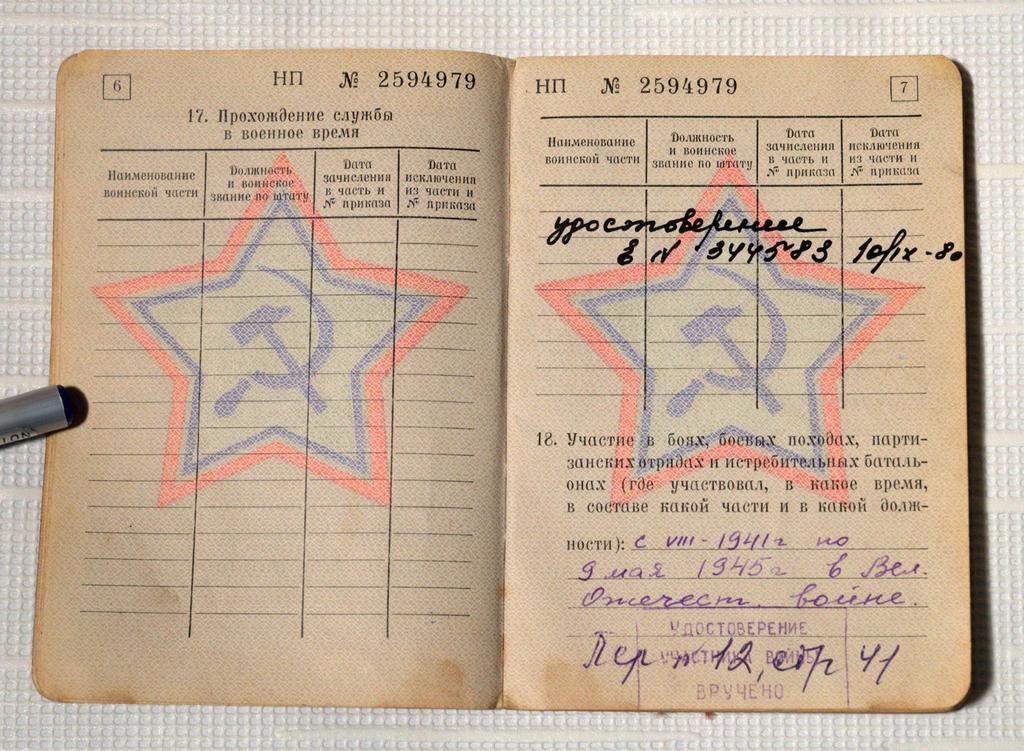 6
НП № 2594979
17. Прохождение службы
в военное время
Наименование
воинской части
Должность
и воинское
звание по штату
Дата
зачисления
в часть и
№ приказа
Дата
исключения
из части и
№ приказа
НП № 2594979
7
Наименование
воинской части
Должность
и воинское
звание по штату
Дата
зачисления
в часть и
№ приказа
Дата
исключения
из части и
№ приказа
удостоверение
Е № 344583 10/IX-80
18. Участие в боях, боевых походах, парти-
занских отрядах и истребительных баталь-
онах (где участвовал, в какое время,
в составе какой части и в какой долж-
ности): с VIII-1941г по
9 мая 1945г в Вел.
Отечест. войне.
УДОСТОВЕРЕНИЕ
УЧАСТНИКА ВОЙНЫ
ВРУЧЕНО
12, стр 41